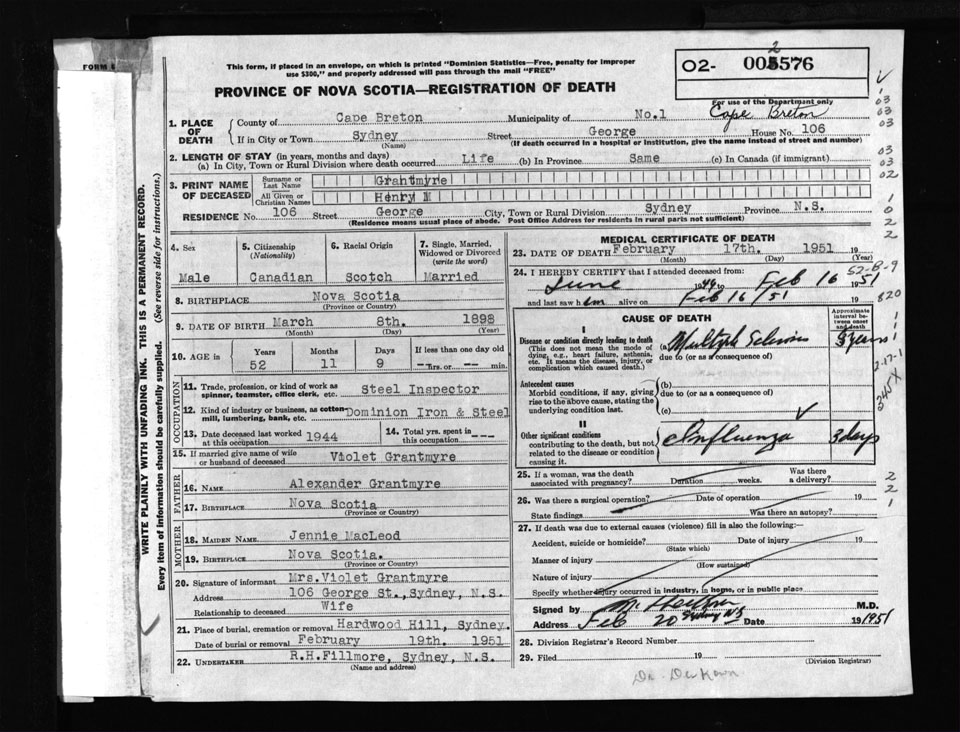 FORM
This form, if placed in an envelope, on which is printed "Dominion Statistics—Free, penalty for improper
use $300," and properly addressed will pass through the mail "FREE"
PROVINCE OF NOVA SCOTIA—REGISTRATION OF DEATH
2
02- 005576
For use of the Department only
Cape Breton
WRITE PLAINLY WITH UNFADING INK. THIS IS A PERMANENT RECORD.
Every item of information should be carefully supplied. (See reverse side for instructions.)
1. PLACE OF DEATH
County of Cape Breton Municipality of No.1
If in City or Town Sydney Street George House No. 106
(Name) (If death occurred in a hospital or institution, give the name instead of street and number)
2. LENGTH OF STAY (in years, months and days)
(a) In City, Town or Rural Division where death occurred Life (b) In Province Same (c) In Canada (if immigrant)
3. PRINT NAME OF DECEASED
Surname or Last Name Grantmyre
All Given or Christian Names Henry M
RESIDENCE No. 106 Street George City, Town or Rural Division Sydney Province N.S.
(Residence means usual place of abode. Post Office Address for residents in rural parts not sufficient)
4. Sex Male
5. Citizenship (Nationality) Canadian
6. Racial Origin Scotch
7. Single, Married, Widowed or Divorced (write the word) Married
8. BIRTHPLACE Nova Scotia
(Province or Country)
9. DATE OF BIRTH March 8th. 1898
(Month) (Day) (Year)
10. AGE in Years Months Days If less than one day old
52 11 9 --hrs. or -- min.
OCCUPATION
11. Trade, profession, or kind of work as spinner, teamster, office clerk, etc. Steel Inspector
12. Kind of industry or business, as cotton-mill, lumbering, bank, etc. Dominion Iron & Steel
13. Date deceased last worked at this occupation 1944
14. Total yrs. spent in this occupation ---
15. If married give name of wife or husband of deceased Violet Grantmyre
FATHER
16. NAME Alexander Grantmyre
17. BIRTHPLACE Nova Scotia
(Province or Country)
MOTHER
18. MAIDEN NAME Jennie MacLeod
19. BIRTHPLACE Nova Scotia.
(Province or Country)
20. Signature of informant Mrs.Violet Grantmyre
Address 106 George St., Sydney, N.S.
Relationship to deceased Wife
21. Place of burial, cremation or removal Hardwood Hill, Sydney.
Date of burial or removal February 19th. 1951
22. UNDERTAKER R.H.Fillmore, Sydney, N.S.
(Name and address)
MEDICAL CERTIFICATE OF DEATH
23. DATE OF DEATH February 17th. 1951 19
(Month) (Day) (Year)
24. I HEREBY CERTIFY that I attended deceased from:
June 1949 to Feb 16 1951
and last saw him alive on Feb 16/51 19
CAUSE OF DEATH
Approximate interval between onset and death
I
Disease or condition directly leading to death
(This does not mean the mode of dying, e.g., heart failure, asthenia, etc. It means the disease, injury, or complication which caused death.)
(a) Multiple Sclerosis
due to (or as a consequence of)
Antecedent causes
Morbid conditions, if any, giving rise to the above cause, stating the underlying condition last.
(b)
due to (or as a consequence of)
(c)
II
Other significant conditions
contributing to the death, but not related to the disease or condition causing it.
Influenza 3 days
25. If a woman, was the death associated with pregnancy? Duration weeks. Was there a delivery?
26. Was there a surgical operation? Date of operation 19
State findings Was there an autopsy?
27. If death was due to external causes (violence) fill in also the following:—
Accident, suicide or homicide? Date of injury 19
(State which)
Manner of injury
(How sustained)
Nature of injury
Specify whether injury occurred in industry, in home, or in public place
Signed by M.D.
Address Date Feb 20 191951
28. Division Registrar's Record Number
29. Filed 19
(Division Registrar)
1
03
03
03
03
03
02
1
0
2
2
52-8-9
820
245X
2
2
1